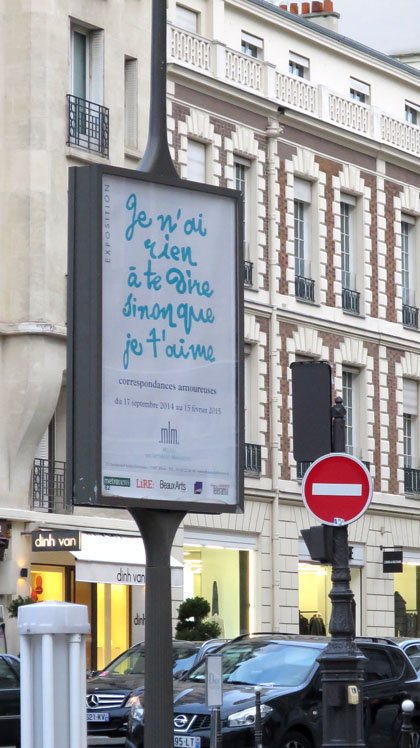 EXPOSITION
Je n'ai
rien
à te dire
sinon que
je t'aime
correspondances amoureuses
du 17 septembre 2014 au 15 février 2015
mlm
LiRE
BeauxArts
dinh van
dinh van